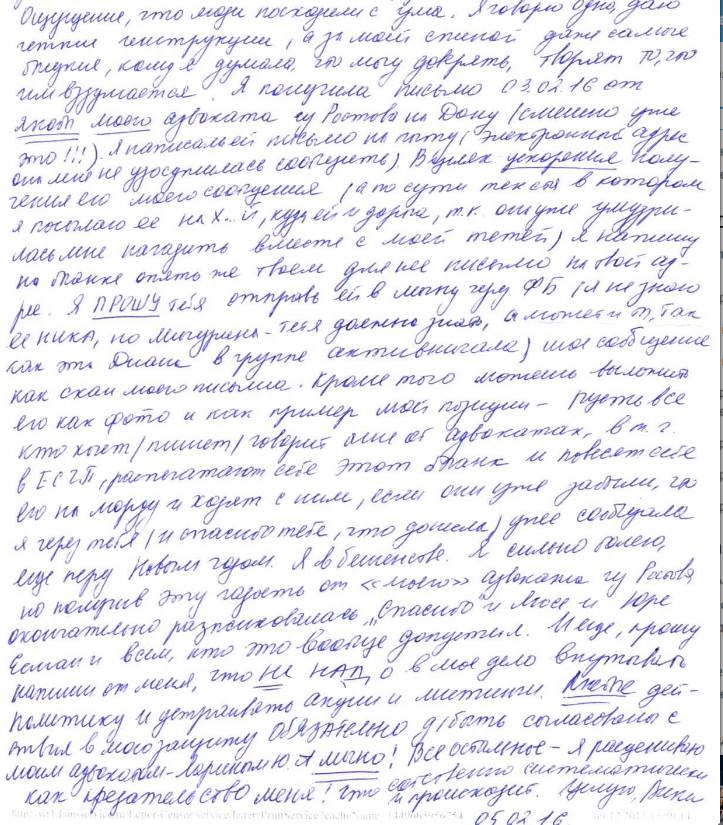 Ощущение, что люди посходили с ума. Я говорю одно, даю
четкие инструкции, а за моей спиной даже самые
близкие, кому я думала, что могу доверять, творят то, что
им вздумается. Я получила письмо 03.02.16 от
якобы моего адвоката из Ростова на Дону (смешно уже
это!!!). Я написала ей письмо на почту (электронный адрес
она мне не удосужилась сообщить). В целях ускорения полу-
чения его моего сообщения (а по сути текста в котором
я посылаю ее на х...й, куда ей и дорога, т.к. они уже умудри-
лась мне нагадить вместе с моей тетей) я напишу
на бланке опять же твоем для нее письмо на твой ад-
рес. Я ПРОШУ тебя отправь ей в личку через ФБ (я не знаю
ее ника, но Мигурена-тетя должна знать, а может и ты, так
как эта Диана в группе активничала) мое сообщение
как скан моего письма. Кроме того можешь выложить
его как фото и как пример моей позиции - пусть все
кто хочет/пишет/говорит мне об адвокатах, в т.ч.
в ЕСПЧ, распечатают себе этот бланк и повесят себе
его на морду и ходят с ним, если они уже забыли, что
я через тебя (и спасибо тебе, что донесла) уже сообщала
еще перед Новым годом. Я в бешенстве. Я сильно болею,
но получив эту гадость от «моего» адвоката из Ростова,
окончательно распсиховалась. "Спасибо" и Люсе и Юре
и всем, кто это вообще допустил. И еще, прошу
напиши от меня, что НЕ НАДО в мое дело впутывать
политику и устраивать акции и митинги. Любые дей-
ствия в мою защиту ОБЯЗАТЕЛЬНО д/быть согласованы с
моим адвокатом-Лариным Ю. А лично! Все остальное - я расцениваю
как предательство меня! что собственно систематически
и происходит. Целую, Вика
05.02.16.